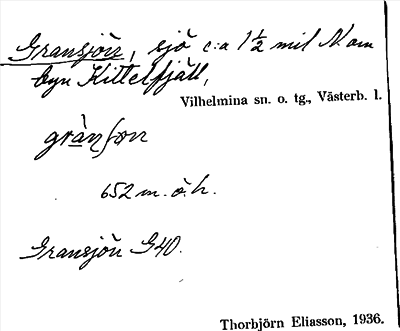 Gransjön, sjö c:a 1½ mil N om
byn Kittelfjäll,
Vilhelmina sn. o. tg., Västerb. l.
652 m. ö. h.
Gransjön G40.
Thorbjörn Eliasson, 1936.